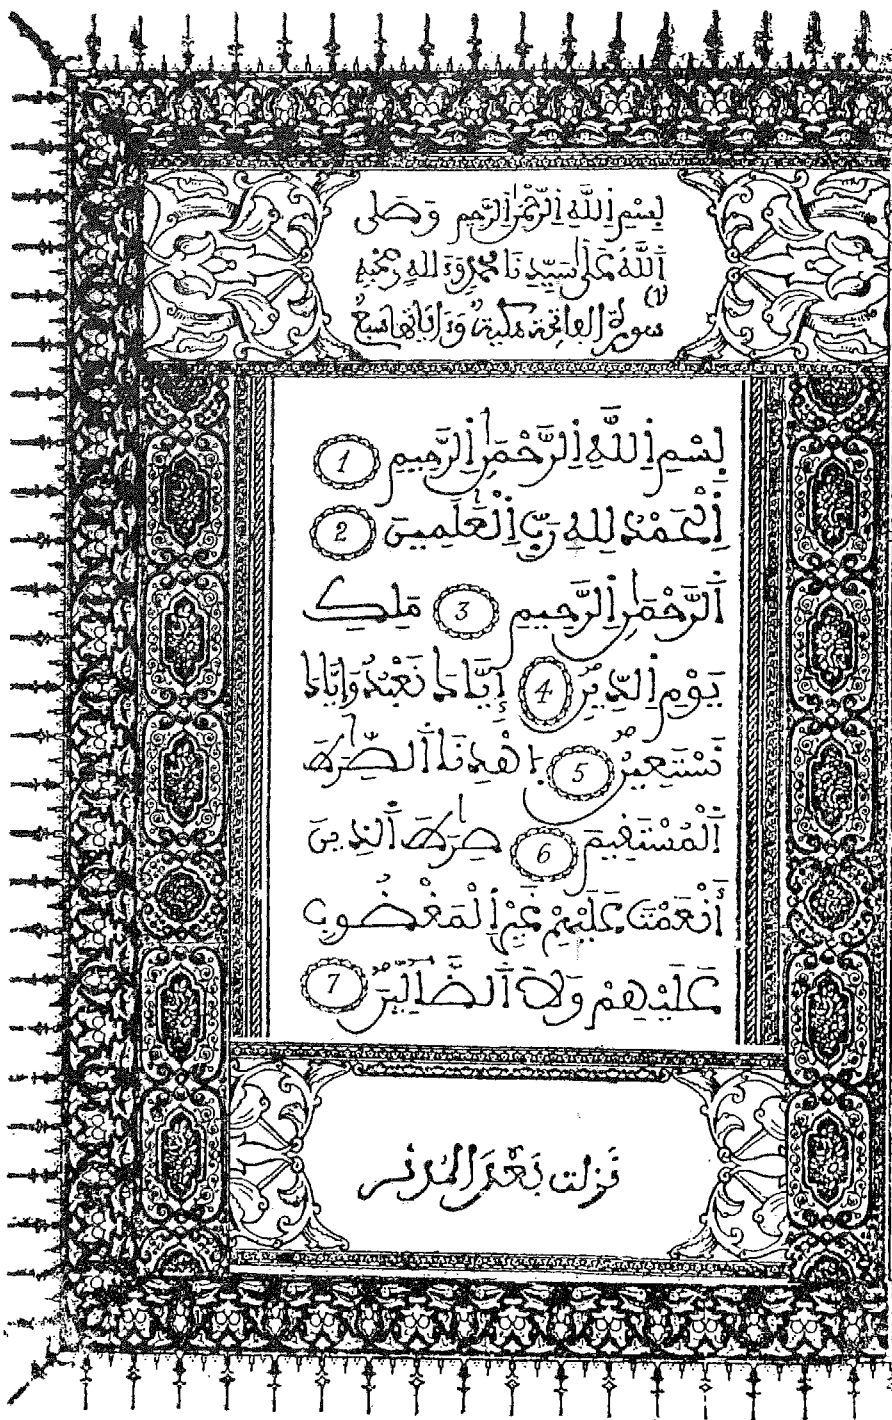 بِسْمِ اِللَّهِ اِلرَّحْمَٰنِ اِلرَّحِيمِ وَصَلَّى
اَللَّهُ عَلَىٰ سَيِّدِنَا مُحَمَّدٍ وَءَالِهِ وَصَحْبِهِ
(1)
سورة الفاتحة مكية وءاياتها سبع
بِسْمِ اِللَّهِ اِلرَّحْمَٰنِ اِلرَّحِيمِ 1
اِلْحَمْدُ لِلهِ رَبِّ اِلْعَٰلَمِينَ 2
اَلرَّحْمَٰنِ اِلرَّحِيمِ 3 مَلِكِ
يَوْمِ اِلدِّينِ 4 إِيَّاكَ نَعْبُدُ وَإِيَّاكَ
نَسْتَعِينُ 5 اِهْدِنَا اَلصِّرَٰطَ
اَلْمُسْتَقِيمَ 6 صِرَٰطَ اَلذِينَ
أَنْعَمْتَ عَلَيْهِمْ غَيْرِ اِلْمَغْضُوبِ
عَلَيْهِمْ وَلَا اَلضَّآلِّينَ 7
نزلت بَعْدَ المُدثر